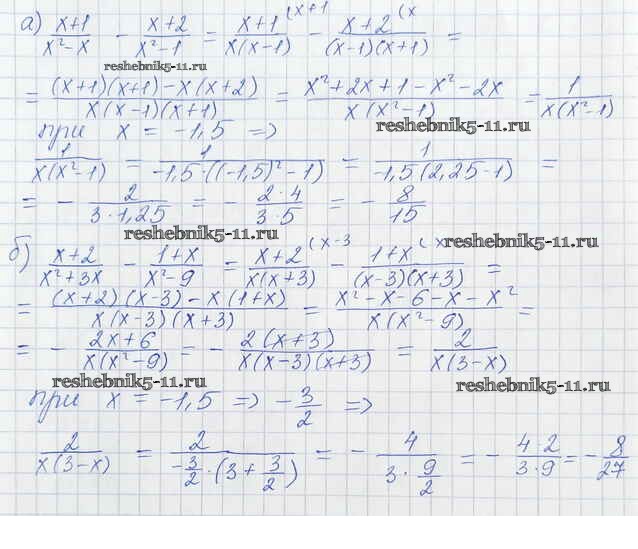 а) (x+1)/(x²-x) - (x+2)/(x²-1) = (x+1)/(x(x-1)) (x+1 - (x+2)/((x-1)(x+1)) (x =
reshebnik5-11.ru
= ((x+1)(x+1)-x(x+2))/(x(x-1)(x+1)) = (x²+2x+1-x²-2x)/(x(x²-1)) = 1/(x(x²-1))
reshebnik5-11.ru
при x = -1,5 =>
1/(x(x²-1)) = 1/(-1,5·((-1,5)²-1)) = 1/(-1,5(2,25-1)) =
= - 2/(3·1,25) = - (2·4)/(3·5) = - 8/15
reshebnik5-11.ru
reshebnik5-11.ru
б) (x+2)/(x²+3x) - (1+x)/(x²-9) = (x+2)/(x(x+3)) (x-3 - (1+x)/((x-3)(x+3)) (x =
= ((x+2)(x-3)-x(1+x))/(x(x-3)(x+3)) = (x²-x-6-x-x²)/(x(x²-9)) =
= - (2x+6)/(x(x²-9)) = - (2(x+3))/(x(x-3)(x+3)) = 2/(x(3-x))
reshebnik5-11.ru
reshebnik5-11.ru
при x = -1,5 => -3/2 =>
2/(x(3-x)) = 2/(-3/2·(3+3/2)) = - 4/(3·9/2) = - (4·2)/(3·9) = - 8/27